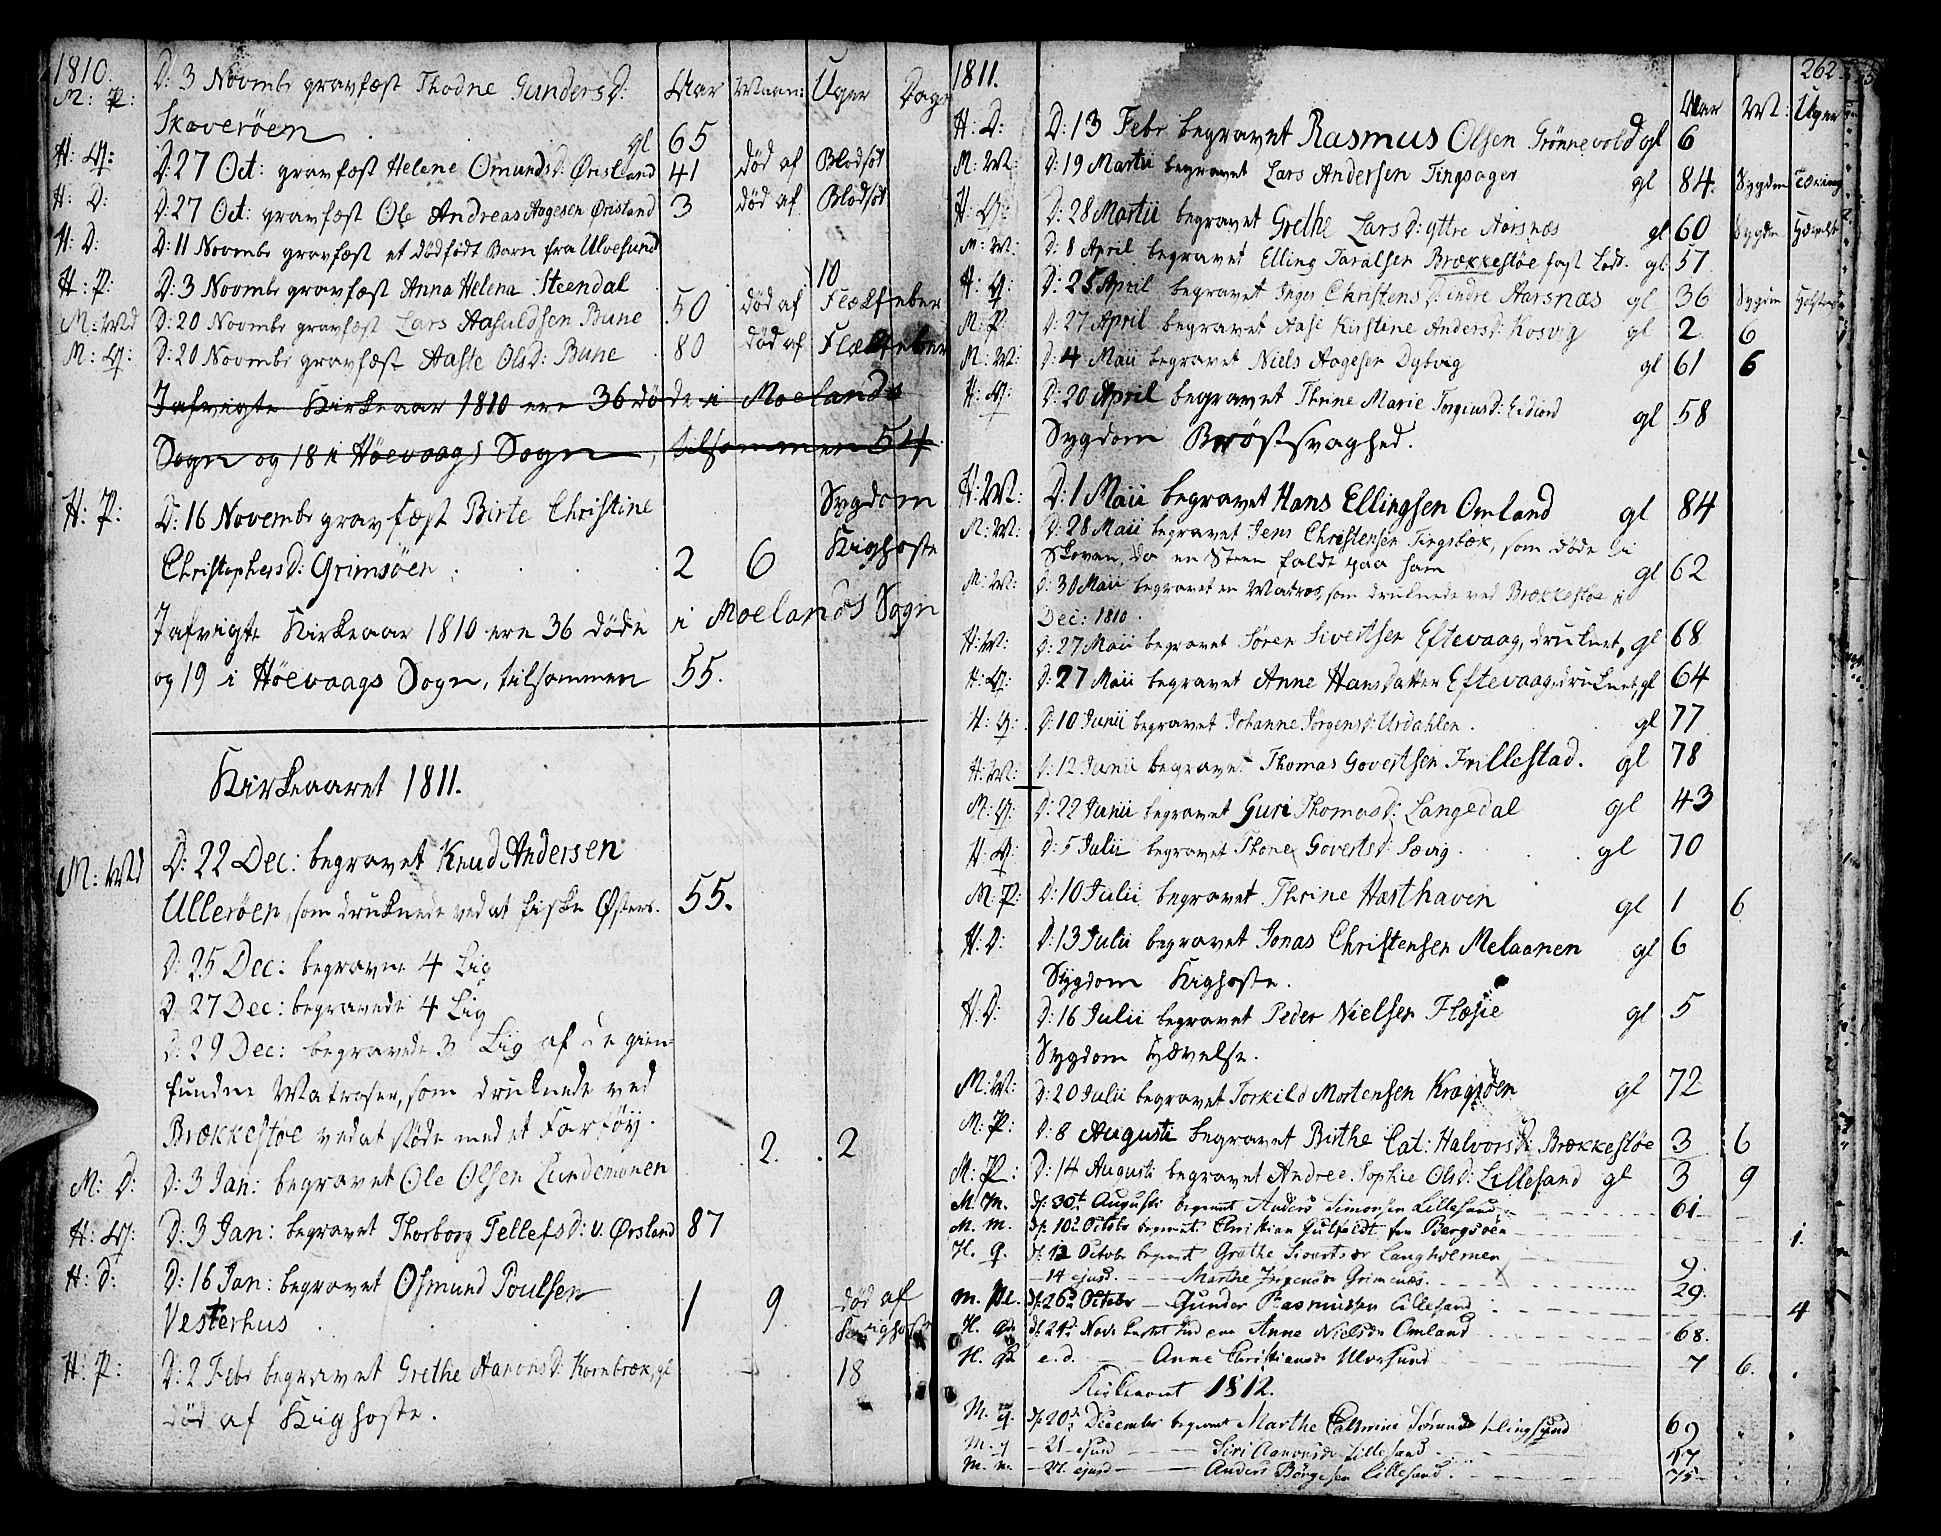 1810.
M: P: D: 3 Novmbr gravfæst Thodne Gunders D: Aar Maan: Uger Dage
Skoverøen gl 65
H: Q: D: 27 Oct: gravfæst Helene Omunds D: Ørisland 41 død af Blodsot
H: D: D: 27 Oct: gravfæst Ole Andreas Aagesen Ørisland 3 død af Blodsot
H: D: D: 11 Novmbr gravfæst et dødfødt Barn fra Ulvesund
H: P: D: 3 Novmbr gravfæst Anna Helena Steendal 10
M: Md D: 20 Novmbr gravfæst Lars Aasuldsen Bune 50 død af Flækfeber
M: Q: D: 20 Novmbr gravfæst Aaste Ols D: Bune 80 død af Flækfeber
I afvigte Kirkeaar 1810 ere 36 døde i Moelands
Sogn og 18 i Høevaags Sogn, tilsammen 54
H: P: D: 16 Novembr gravfæst Birte Christine Sygdom
Christophers D: Grimsøen 2 6 Kighoste
I afvigte Kirkeaar 1810 ere 36 døde i Moelands Sogn
og 19 i Høevaags Sogn, tilsammen 55.
Kirkeaaret 1811.
M: Md D: 22 Dec: begravet Knud Andersen
Ullerøen, som druknede ved at fiske Østers. 55.
D: 25 Dec: begravne 4 Lig
D: 27 Dec: begravede 4 Lig
D: 29 Dec: begravede 3 Lig af de gien-
fundne Matroser, som druknede ved
Brækkestøe ved at støde med et Farføy.
M: D: D: 3 Jan: begravet Ole Olsen Lundemonen 2. 2
H: Q: D: 3 Jan: begravet Thorborg Tellefs D: v. Ørsland 87
H: D: D: 16 Jan: begravet Osmund Poulsen
Vesterhus 1 9 død af Kighoste
H: P: D: 2 Febr begravet Grethe Aanons D: Kornbræk, gl 18
død af Kighoste.
1811. 262
Aar M: Uger
H: D: D: 13 Febr begravet Rasmus Olsen Grønnevold gl 6
M: M: D: 19 Martii begravet Lars Andersen Tingsager gl 84. Sygdm Tæring
H: Q: D: 28 Martii begravet Grethe Lars D: yttre Aarsnæs gl 60 Sygdm Hævelse
M: M: D: 8 April begravet Elling Taralsen Brækkestøe fast Lods. gl 57
H: Q: D: 25 April begravet Inger Christens D: indre Aarsnæs gl 36 Sygdm
M: P: D: 27 April begravet Aase Kirstine Anders D: Kosvig gl 2 6
M: M: D: 4 Maii begravet Niels Aagesen Dybvig gl 61 6
H: Q: D: 20 April begravet Thrine Marie Torgius D: Eidiord gl 58
Sygdom Brøstsvaghed.
H: M: D: 1 Maii begravet Hans Ellingsen Omland gl 84
M: M: D: 28 Maii begravet Jens Christensen Tingsbæk, som døde i
Skoven, da en Steen faldt paa ham gl 62
M: M: D: 30 Maii begravet en Matros, som druknede ved Brækkestøe i
Dec: 1810.
H: M: D: 27 Maii begravet Søren Sivertsen Eftevaag, druknet, gl 68
H: Q: D: 27 Maii begravet Anne Hansdatter Eftevaag druknet, gl 64
H: Q: D: 10 Junii begravet Johanne Jørgens D: Urdahlen gl 77
H: M: D: 12 Junii begravet Thomas Govertsen Frillestad. gl 78
M: Q: D: 22 Junii begravet Guri Thomas D: Langedal gl 43
H: Q: D: 5 Julii begravet Thone Goverts D: Sævig gl 70
M: P: D: 10 Julii begravet Thrine Hæsthaven gl 1 6
H: D: D: 13 Julii begravet Jonas Christensen Melaanen gl 6
Sygdom Kighoste.
H: D: D: 16 Julii begravet Peder Nielsen Flæsie gl 5
Sygdom Hævelse.
M: M: D: 20 Julii begravet Torkild Mortensen Kragsøen gl 72
M: P: D: 8 Augusti begravet Birthe Cat: Halvors D: Brækkestøe 3 6
M: P: D: 14 Augusti begravet Andree Sophie Ols D: Lillesand gl 3 9
M. M. D. 30t Augusti begravet Anders Simonsen Lillesand 61
M. M. D. 10 Octobr begravet Christian fra Bergsøen 1.
H. Q. D. 12 Octobr begravet Grethe Langholmen
14 ejusd. Marthe Grimenæs. 9.
M. D. 26 Octobr Gunder Rasmussen Lillesand 29. 4
H. Q. D. 24 Nov. Anne Nielsdr Omland 68.
H. e. d. Anne Christiansdr Ulvesund 7 6.
Kirkeaaret 1812.
M. Q. D. 20 December begravet Marthe Cathrine 69
M. q 21 ejusd Siri Aanonsdr Lillesand
M. m. 21 ejusd Anders Børgesen Lillesand. 75